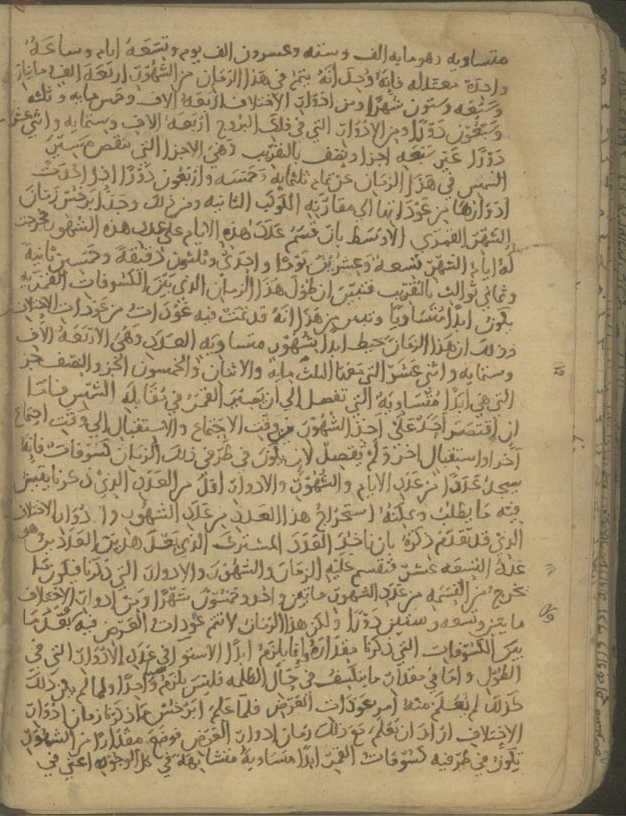 متساويه وهو مايه الف وسته وعشرون الف يوم وتسعه ايام وساعه
واحده معتدله فانه وجد انه يتم في هذا الزمان من الشهور اربعه الف ومايتان
وسبعه وستون شهرا ومن ادوار الاختلاف اربعه الاف وخمس مايه وثلثه
وسبعون دورا ومن الادوار التي في فلك البروج اربعه الاف وستمايه واثني عشر
دورا غير سبعه اجزا ونصف بالتقريب وهي الاجزا التي تنقص مسير
الشمس في هذا الزمان عن تمام ثلثمايه وخمسه واربعون دورا اذا اخذت
ادوارها من عودتها الي مقارنه الكواكب الثابته ومن ذلك وجد ابرخس زمان
الشهر القمري الاوسط بان قسم عدد هذه الايام علي عدد هذه الشهور فخرجت
له ايام الشهر تسعه وعشرين يوما واحدي وثلثون دقيقه وخمسين ثانيه
وثماني ثوالث بالتقريب فتبين ان طول هذا الزمان الذي بين الكسوفات القمريه
يكون ابدا متساويا وتبين من هذا انه قد تمت فيه عودات من عودات الاختلاف
وذلك ان هذا الزمان يحيط ابدا بشهور متساويه العدد وهي الاربعه الاف
وستمايه واثني عشر التي معها الثلث مايه والاثنان والخمسون الجز والنصف جز
التي هي ابدا متساويه التي تفصل الي ان يصير القمر في مقابله الشمس فاما
ان اقتصر احد علي اخذ الشهور من وقت الاجتماع والاستقبال الي وقت اجتماع
اخر او استقبال اخر ولم يقصد لان يكون في طرفي ذلك الزمان كسوفات فانه
سيجد عددا من عدد الايام والشهور والادوار اقل من العدد الذي ذكرنا يتبين
فيه ما يطلب ويمكنه استخراج هذا العدد من عدد الشهور وادوار الاختلاف
الذي قد تقدم ذكره بان ناخذ العدد المشترك الذي يعد هذين العددين وهو
عدد السبعه عشر فنقسم عليه الزمان والشهور والادوار التي ذكرنا فيكون ما
يخرج من القسمه من عدد الشهور مايتين واحد وخمسون شهرا ومن ادوار الاختلاف
مايتين وتسعه وستين دورا ولكن هذا الزمان لا تتم عودات العرض فيه بعد ما
بين الكسوفات التي ذكرنا مقدارها فانما يلزم ابدا الاستوا في عدد الادوار التي في
الطول واما في مقدار ما ينكسف في حال الظلمه فليس يلزم واحدا ولما لم يكن ذلك
كذلك لم يعلم منه امر عودات العرض فلما علم ابرخس ما ذكرنا زمان ادوار
الاختلاف اراد ان يعلم مع ذلك زمان ادوار العرض فوضع مقدارا من الشهور
تكون في طرفيه كسوفات القمر ابدا متساويه متشابهه في كل الوجوه اعني في